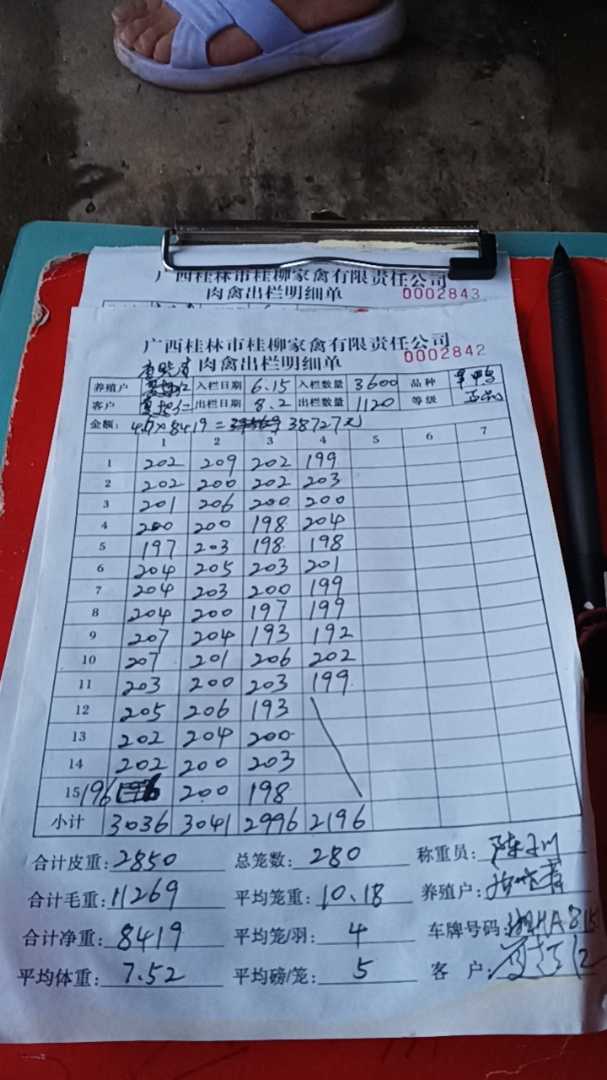 广西桂林市桂柳家禽有限责任公司
肉禽出栏明细单 0002843
广西桂林市桂柳家禽有限责任公司
肉禽出栏明细单 0002842
养殖户 入栏日期 6.15 入栏数量 3600 品种
客户 出栏日期 8.2 出栏数量 1120 等级
金额: 8419 = 38727元
1 2 3 4 5 6 7
1 202 209 202 199
2 202 200 202 203
3 201 206 200 200
4 200 200 198 204
5 197 203 198 198
6 204 205 203 201
7 204 203 200 199
8 204 200 197 199
9 207 204 193 192
10 207 201 206 202
11 203 200 203 199
12 205 206 193
13 202 204 200
14 202 200 203
15 196 200 198
小计 3036 3041 2996 2196
合计皮重: 2850 总笼数: 280 称重员:
合计毛重: 11269 平均笼重: 10.18 养殖户:
合计净重: 8419 平均笼/羽: 4 车牌号码:
平均体重: 7.52 平均磅/笼: 5 客 户: